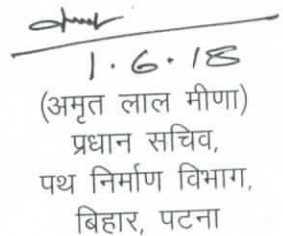 1.6.18
(अमृत लाल मीणा)
प्रधान सचिव,
पथ निर्माण विभाग,
बिहार, पटना